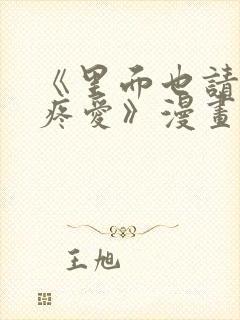 《里而也請
疼愛》漫畫
王旭